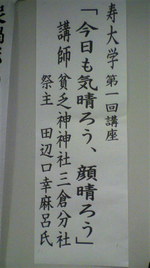 寿大学 第一回講座
「今日も気晴ろう、顔晴ろう」
講師 貧乏神神社三倉分社
祭主 田辺口幸麻呂氏